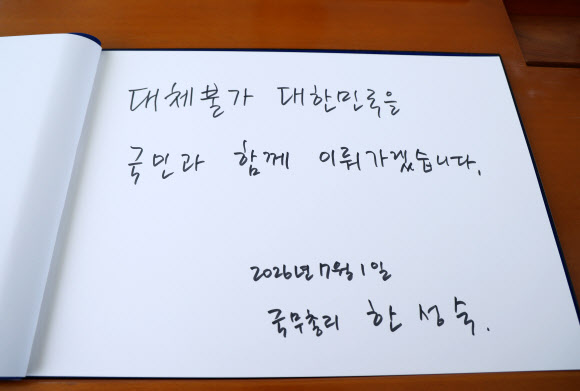 대체불가 대한민국을
국민과 함께 이뤄가겠습니다.
2026년 7월 1일
국무총리 한성숙.